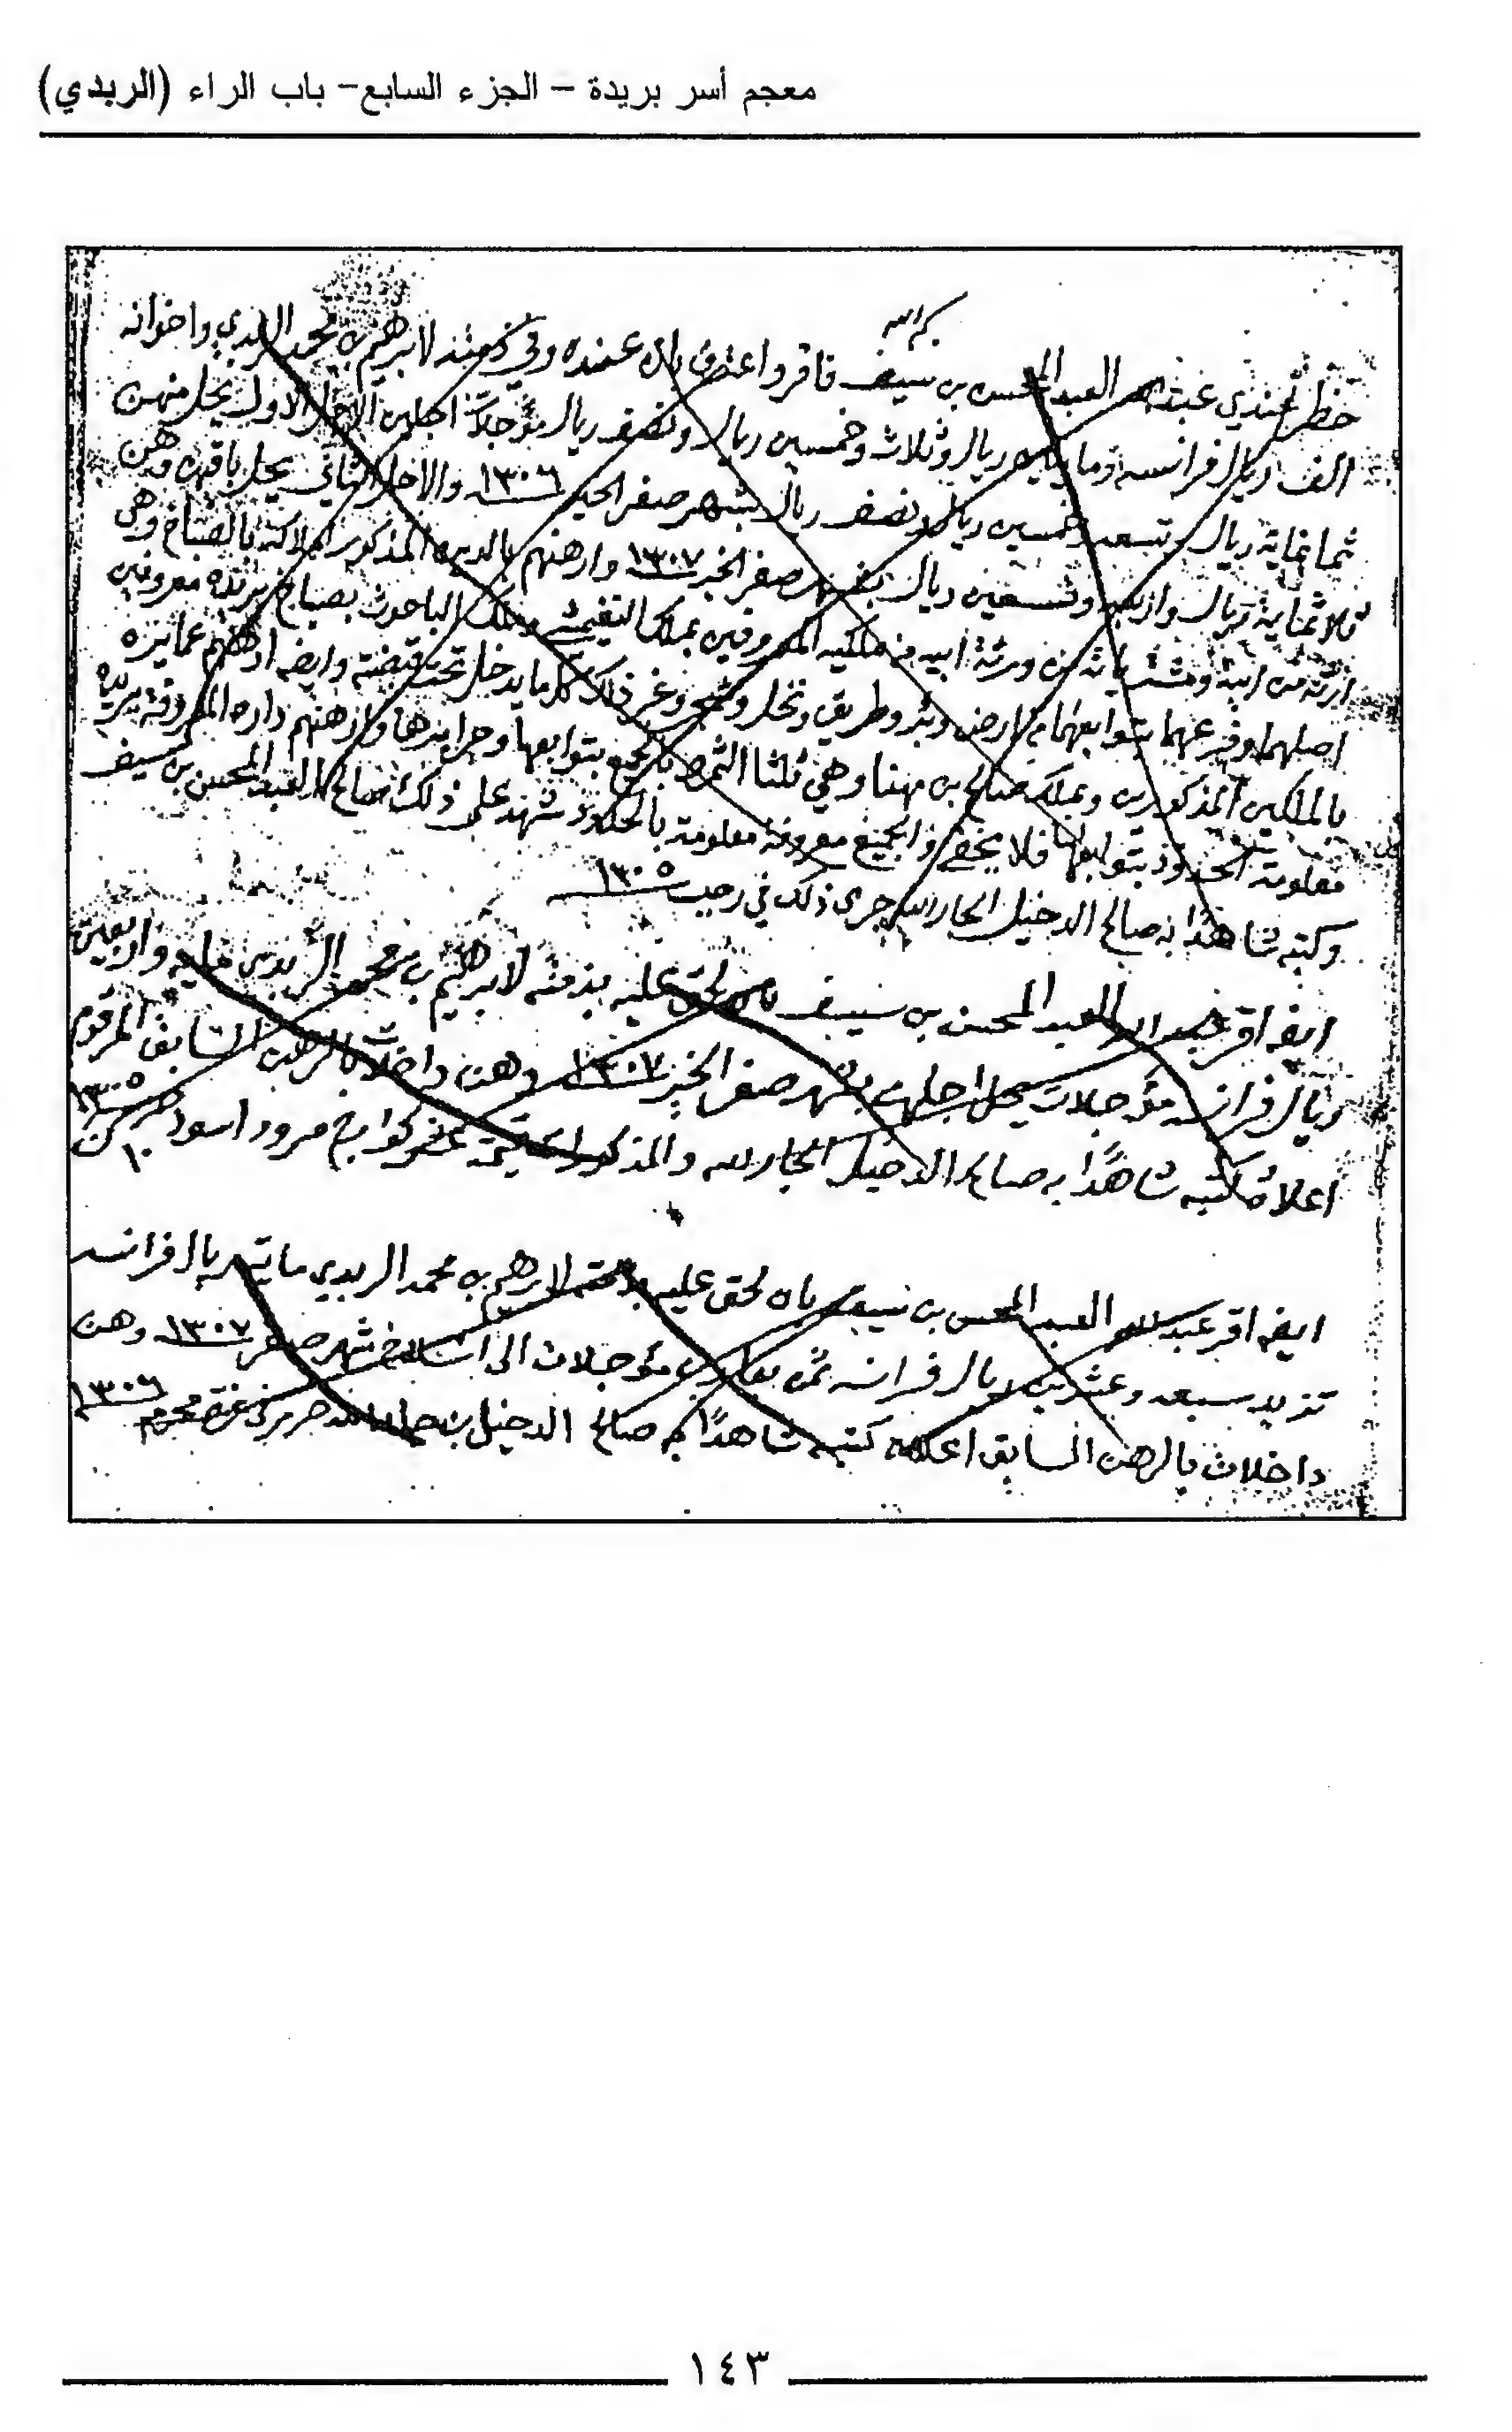 معجم أسر بريدة – الجزء السابع– باب الراء (الربدي)
حضر عندي عبدالله العبدالمحسن بن سيف فاقر واعترف بان عنده وفي ذمته لابرهيم بن محمد الربدي واخوانه
الف ريال فرانسه ومايتين ريال وثلاث وخمسين ريال ونصف ريال مؤجلات اجلين الاجل الاول يحل منهن
ثمانماية ريال وتسعه وخمسين ريال ونصف ريال بشهر صفر الخير ١٣٠٦ والاجل الثاني يحل باقهن وهن
ثلاثماية ريال واربعه وتسعين ريال بشهر صفر الخير ١٣٠٧ وارهنهم بالدين المذكور املاكه بالصباخ وهي
ارثه من ابيه من ورثة ابيه من ملكيه المعروفين بملك النغيمشي وملك الباحوث بصباخ بريده معروفين
اصلهما وفرعهما بتوابعهما من ارض وبئر وطريق ونخل وشجر وغير ذلك كلما يدخل تحت قبضته وايضه ارهنهم عمايره
بالملكين المذكورين وبملك صالح بن مهنا وهي ثلثا الثمره الجميع بتوابعها وجرايرها وارهنهم داره المعروفه ببريده
معلومة الحدود بتوابعها فلا يخفى والجميع معروفة معلومة بالحدود شهد على ذلك صالح العبدالمحسن بن سيف
وكتبه شاهدًا به صالح الدخيل الجارالله جرى ذلك في رجب ١٣٠٥
ايضه اقر عبدالله العبدالمحسن بن سيف بان لحق عليه بذمته لابرهيم بن محمد الربدي مايه واربعين
ريال فرانسه مؤجلات يحل اجلهن بشهر صفر الخير ١٣٠٧ وهن داخلات بالرهن السابق المرقوم
اعلاه كتبه شاهدًا به صالح الدخيل الجارالله والمذكورات قيمة مرود اسود ١٣٠٥
١٠
ايضه اقر عبدالله العبدالمحسن بن سيف بان لحق عليه بذمته لابرهيم بن محمد الربدي مايتين ريال فرانسه
تزيد سبعه وعشرين ريال فرانسه ثمن مؤجلات الى انسلاخ شهر صفر ١٣٠٧ وهن
داخلات بالرهن السابق اعلاه كتبه شاهدًا به صالح الدخيل بن جارالله حرر في غرة محرم ١٣٠٦
١٤٣